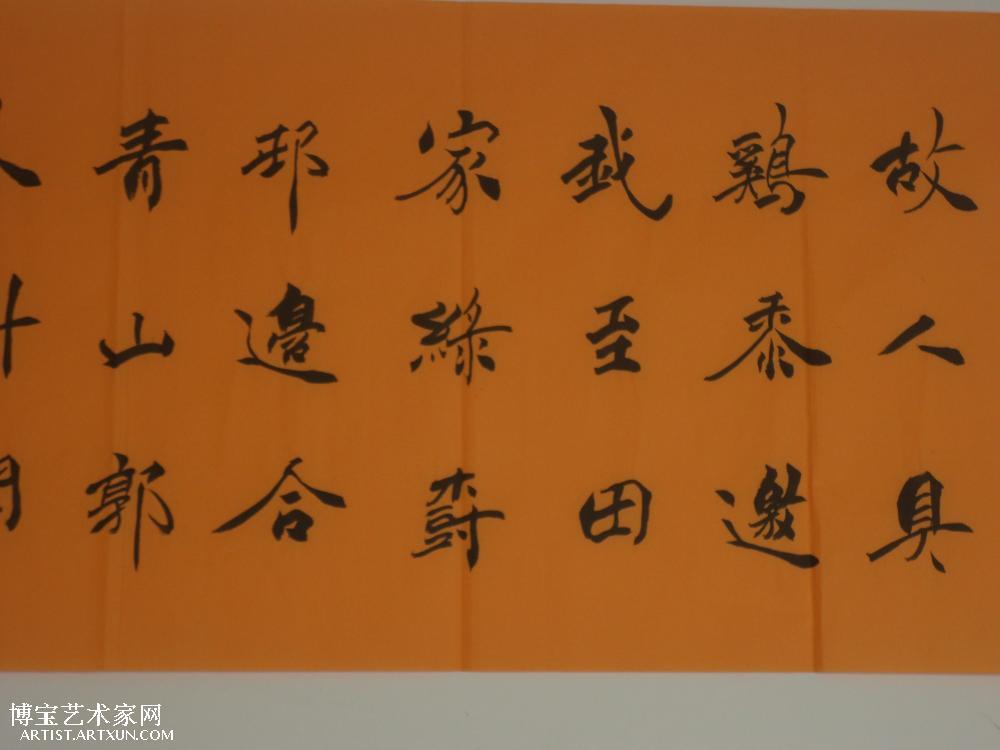 故人具
鷄黍邀
我至田
家綠樹
邨邊合
青山郭
博宝艺术家网
ARTIST.ARTXUN.COM